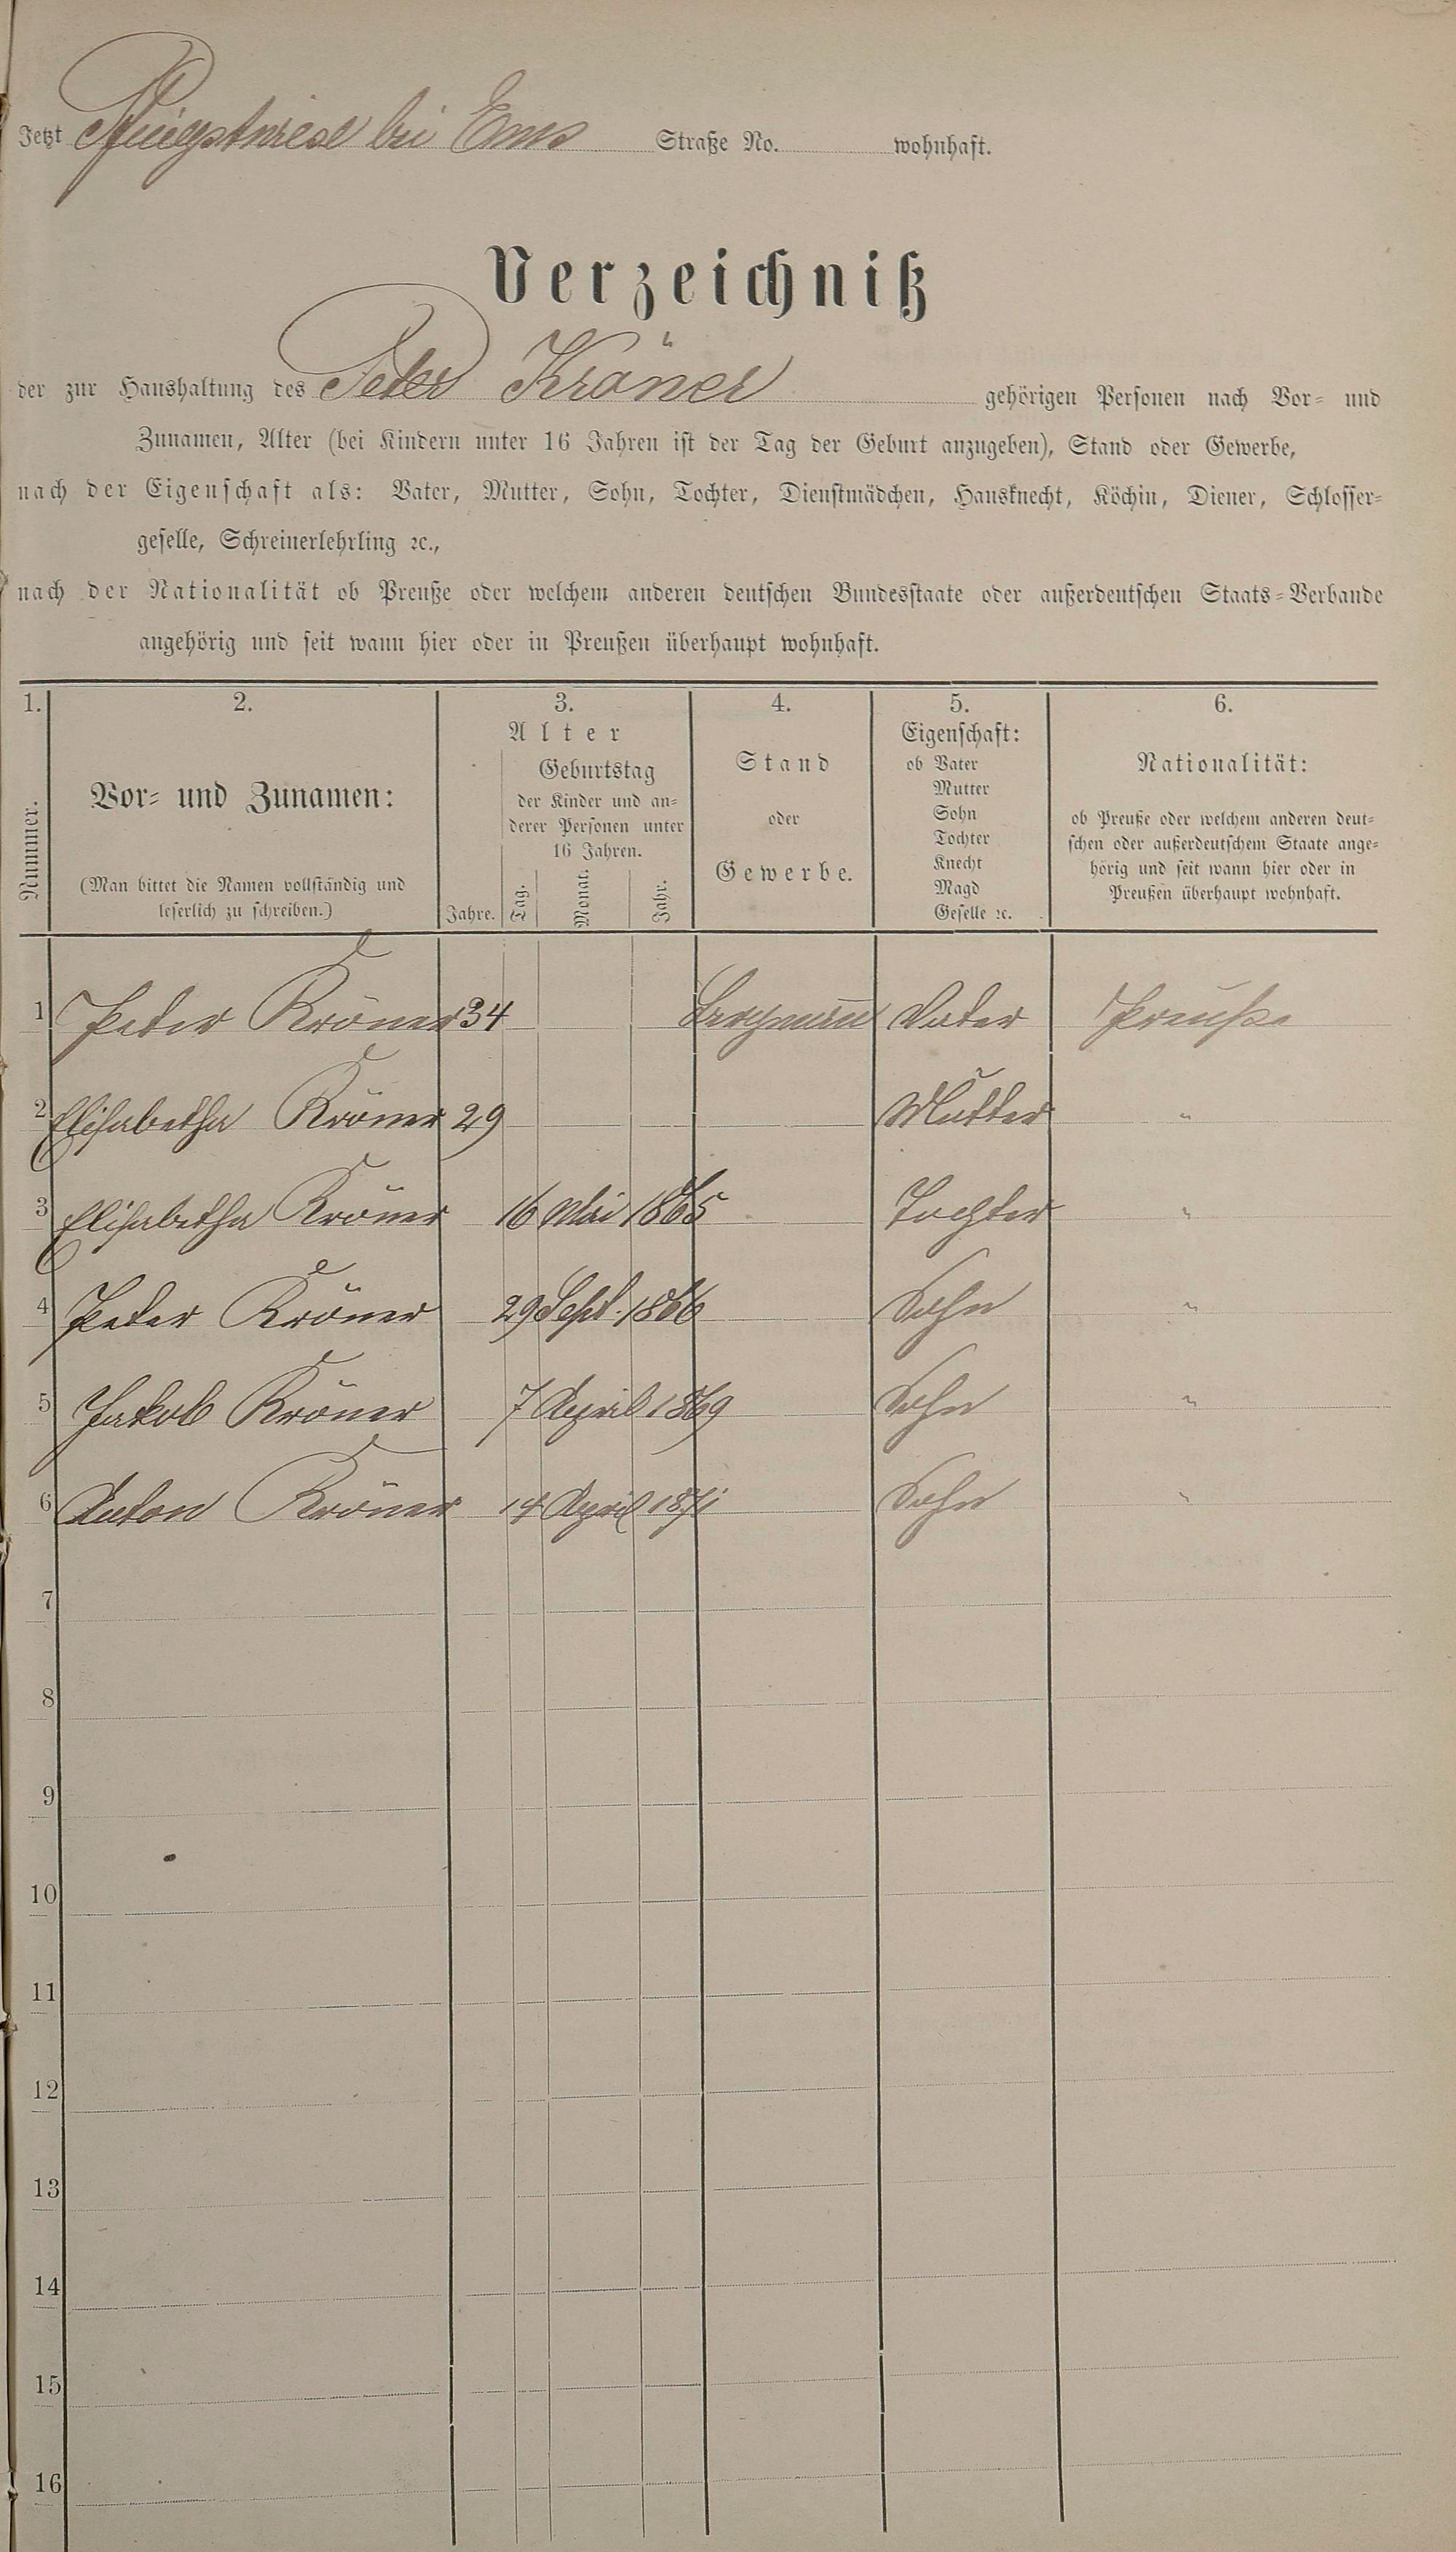 Jetzt Pfingstwiese bei Ems Straße No. wohnhaft.
Verzeichniß
der zur Haushaltung des Peter Kröner gehörigen Personen nach Vor- und
Zunamen, Alter (bei Kindern unter 16 Jahren ist der Tag der Geburt anzugeben), Stand oder Gewerbe,
nach der Eigenschaft als: Vater, Mutter, Sohn, Tochter, Dienstmädchen, Hausknecht, Köchin, Diener, Schlosser-
geselle, Schreinerlehrling ꝛc.,
nach der Nationalität ob Preuße oder welchem anderen deutschen Bundesstaate oder außerdeutschen Staats-Verbande
angehörig und seit wann hier oder in Preußen überhaupt wohnhaft.
1. 2. 3. 4. 5. 6.
Nummer.
Vor- und Zunamen:
(Man bittet die Namen vollständig und
leserlich zu schreiben.)
Alter
Jahre.
Geburtstag
der Kinder und an-
derer Personen unter
16 Jahren.
Tag. Monat. Jahr.
Stand
oder
Gewerbe.
Eigenschaft:
ob Vater
Mutter
Sohn
Tochter
Knecht
Magd
Geselle ꝛc.
Nationalität:
ob Preuße oder welchem anderen deut-
schen oder außerdeutschem Staate ange-
hörig und seit wann hier oder in
Preußen überhaupt wohnhaft.
1 Peter Kröner 34 Bergmann Vater Preuße
2 Elisabetha Kröner 29 Mutter "
3 Elisabetha Kröner 16 Mai 1865 Tochter "
4 Peter Kröner 29 Sept. 1866 Sohn "
5 Jakob Kröner 7 April 1869 Sohn "
6 Anton Kröner 14 April 1871 Sohn "
7
8
9
10
11
12
13
14
15
16